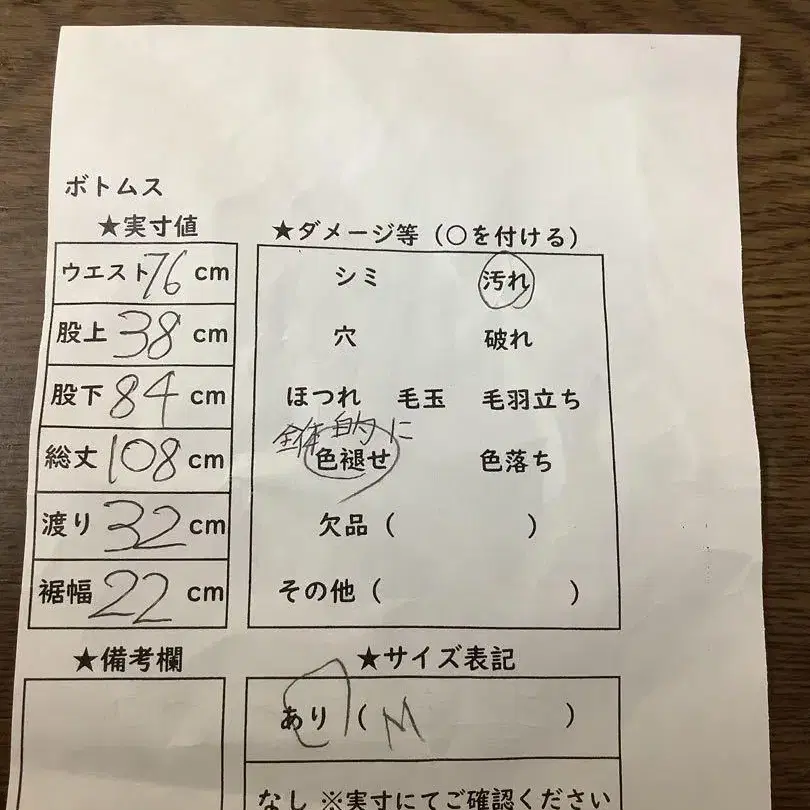 ボトムス
★実寸値
ウエスト 76 cm
股上 38 cm
股下 84 cm
総丈 108 cm
渡り 32 cm
裾幅 22 cm
★ダメージ等（○を付ける）
シミ 汚れ
穴 破れ
ほつれ 毛玉 毛羽立ち
全体的に
色褪せ 色落ち
欠品（ ）
その他（ ）
★備考欄
★サイズ表記
あり（ M ）
なし ※実寸にてご確認ください